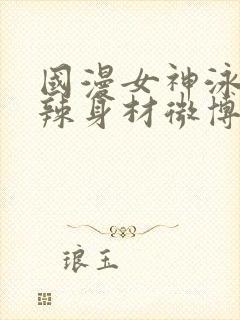 國漫女神泳
辣身材微博
琅玉